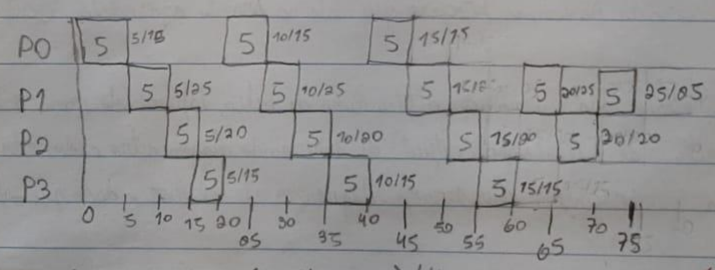 P0 5 5/15 5 10/15 5 15/15
P1 5 5/25 5 10/25 5 5 20/25 5 25/25
P2 5 5/20 5 10/20 5 15/20 5 20/20
P3 5 5/15 5 10/15 5 15/15
0 5 10 15 20 25 30 35 40 45 50 55 60 65 70 75